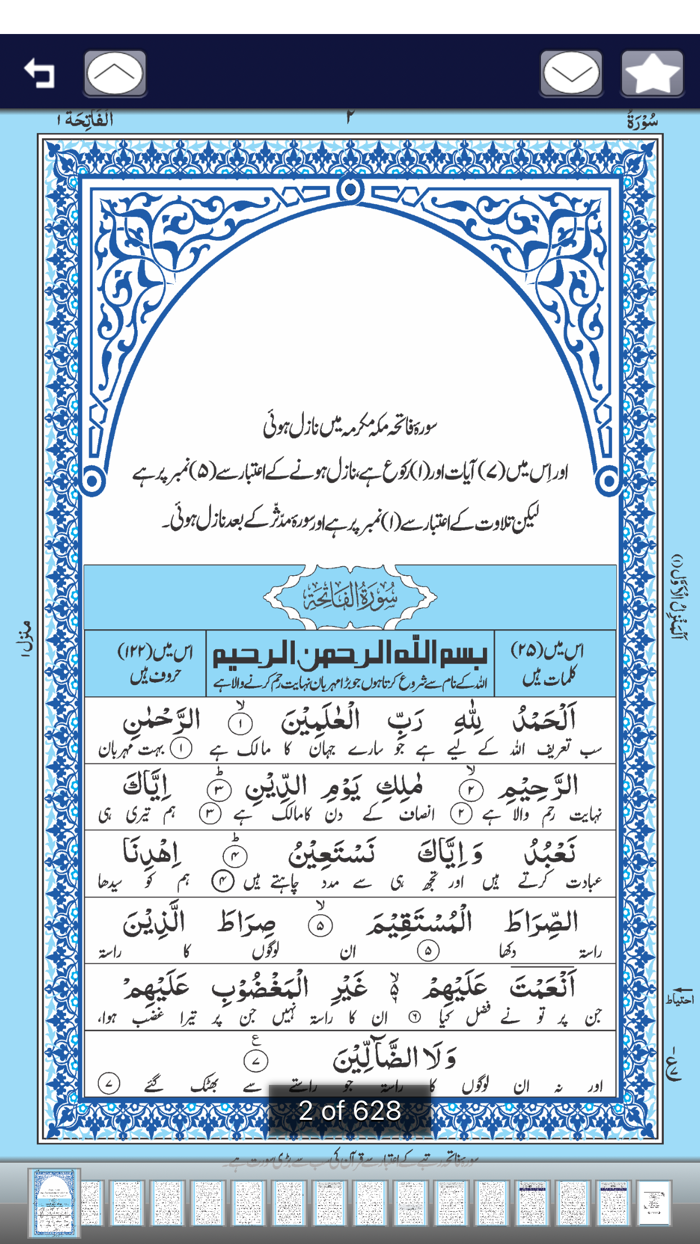 سُوْرَةُ ٢ اَلْفَاتِحَة ١
سورۂ فاتحہ مکہ مکرمہ میں نازل ہوئی
اور اِس میں (۷) آیات اور (۱) رکوع ہے، نازل ہونے کے اعتبار سے (۵) نمبر پر ہے
لیکن تلاوت کے اعتبار سے (۱) نمبر پر ہے اور سورۂ مدّثر کے بعد نازل ہوئی۔
سُوْرَةُ الْفَاتِحَةِ
اس میں (۲۵) کلمات ہیں
بسم الله الرحمن الرحيم
اللہ کے نام سے شروع کرتا ہوں جو بڑا مہربان نہایت رحم کرنے والا ہے
اس میں (۱۲۲) حروف ہیں
اَلْحَمْدُ لِلّٰهِ رَبِّ الْعٰلَمِيْنَ ۙ﴿١﴾ الرَّحْمٰنِ
سب تعریف اللہ کے لیے ہے جو سارے جہان کا مالک ہے ﴿۱﴾ بہت مہربان
الرَّحِيْمِ ۙ﴿٢﴾ مٰلِكِ يَوْمِ الدِّيْنِ ؕ﴿٣﴾ اِيَّاكَ
نہایت رحم والا ہے ﴿۲﴾ انصاف کے دن کا مالک ہے ﴿۳﴾ ہم تیری ہی
نَعْبُدُ وَاِيَّاكَ نَسْتَعِيْنُ ؕ﴿٤﴾ اِهْدِنَا
عبادت کرتے ہیں اور تجھ ہی سے مدد چاہتے ہیں ﴿۴﴾ ہم کو سیدھا
الصِّرَاطَ الْمُسْتَقِيْمَ ۙ﴿٥﴾ صِرَاطَ الَّذِيْنَ
راستہ دکھا ﴿۵﴾ ان لوگوں کا راستہ
اَنْعَمْتَ عَلَيْهِمْ ۙ۬ غَيْرِ الْمَغْضُوْبِ عَلَيْهِمْ
جن پر تو نے فضل کیا ﴿۶﴾ ان کا راستہ نہیں جن پر تیرا غضب ہوا،
وَلَا الضَّآلِّيْنَ ﴿٧﴾ ع
اور نہ ان لوگوں کا راستہ جو راستے سے بھٹک گئے ﴿۷﴾
2 of 628
اَلْمَنْزِلُ الْاَوَّلُ (١)
منزل ۱
احتیاط